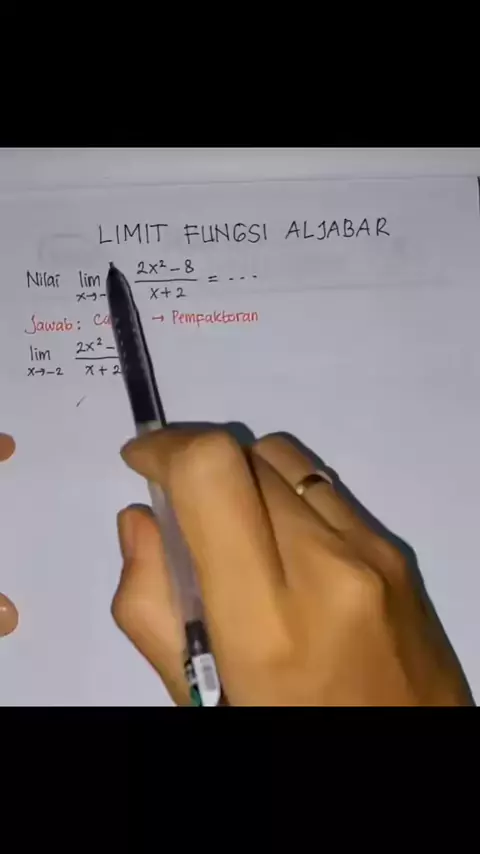 LIMIT FUNGSI ALJABAR
Nilai lim 2x² - 8 = ...
x→- x + 2
Jawab: → Pempaktoran
lim 2x² -
x→-2 x + 2